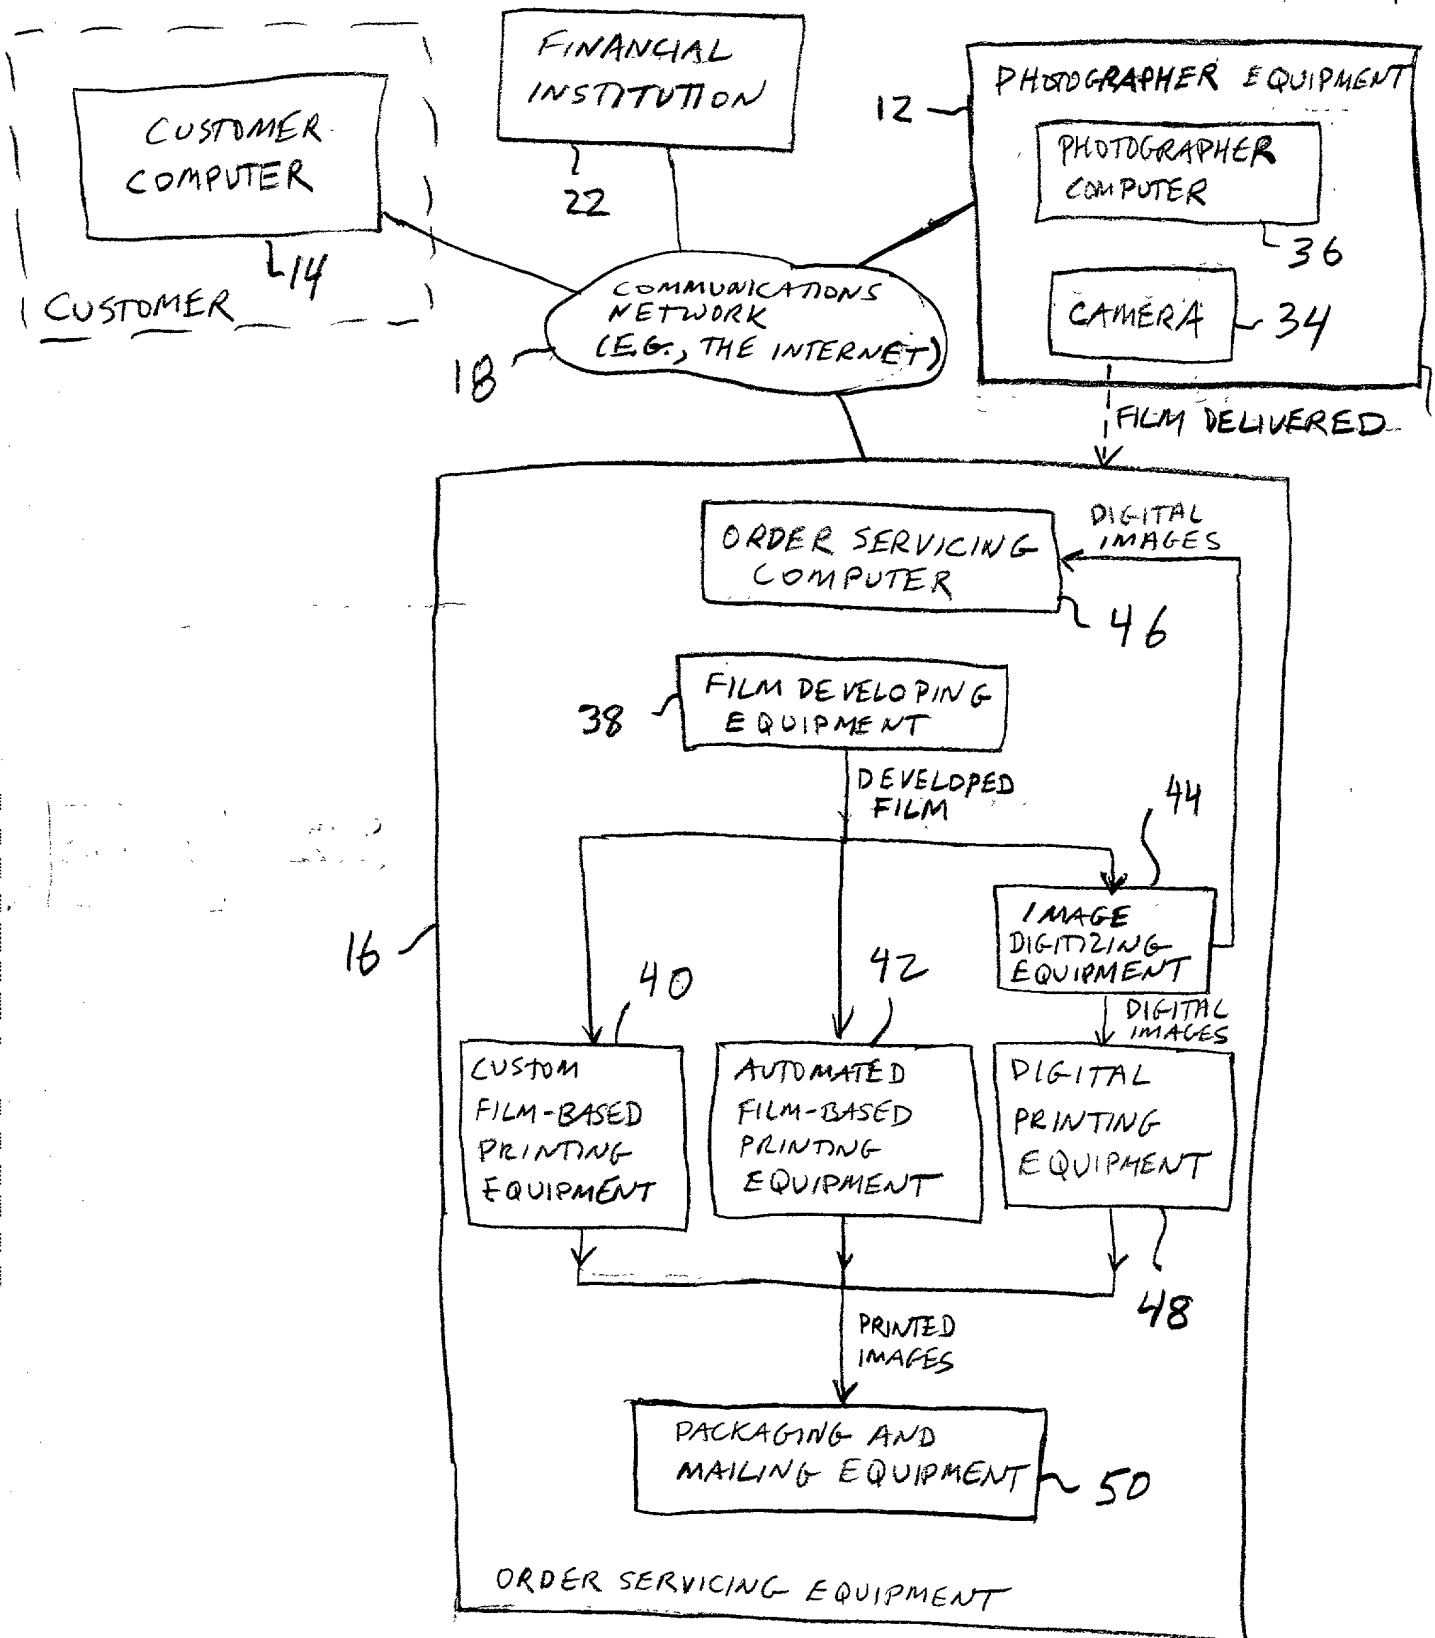 FINANCIAL
INSTITUTION
22
CUSTOMER
COMPUTER
14
CUSTOMER
12
PHOTOGRAPHER EQUIPMENT
PHOTOGRAPHER
COMPUTER
36
CAMERA
34
COMMUNICATIONS
NETWORK
(E.G., THE INTERNET)
18
FILM DELIVERED
ORDER SERVICING
COMPUTER
46
DIGITAL
IMAGES
FILM DEVELOPING
EQUIPMENT
38
DEVELOPED
FILM
44
IMAGE
DIGITIZING
EQUIPMENT
16
40
42
DIGITAL
IMAGES
CUSTOM
FILM-BASED
PRINTING
EQUIPMENT
AUTOMATED
FILM-BASED
PRINTING
EQUIPMENT
DIGITAL
PRINTING
EQUIPMENT
48
PRINTED
IMAGES
PACKAGING AND
MAILING EQUIPMENT
50
ORDER SERVICING EQUIPMENT